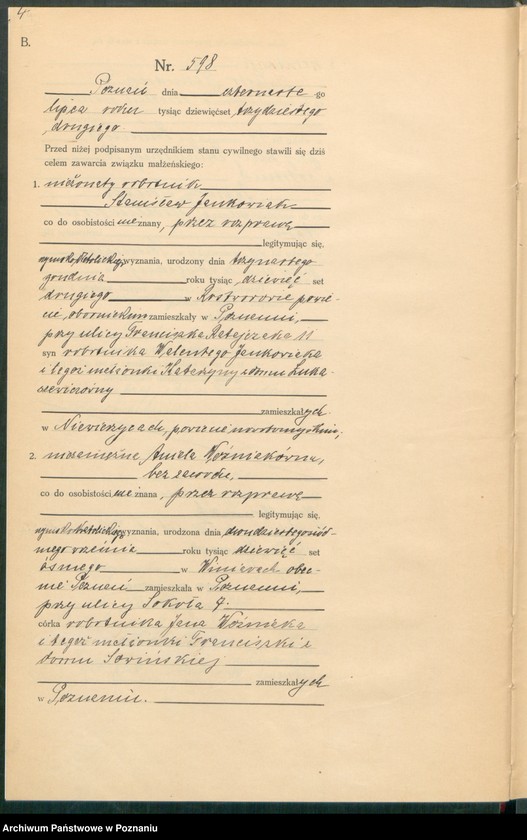 4
B.
Nr. 598
Poznań dnia czternastego
lipca roku tysiąc dziewięćset trzydziestego
drugiego
Przed niżej podpisanym urzędnikiem stanu cywilnego stawili się dziś
celem zawarcia związku małżeńskiego:
1. nieżonaty robotnik
Stanisław Jankowiak
co do osobistości nieznany, przez rozprawę
legitymując się,
rzymskokatolickiego wyznania, urodzony dnia trzynastego
grudnia roku tysiąc dziewięć set
drugiego w Rostworowie powie-
cie obornickim zamieszkały w Poznaniu,
przy ulicy Franciszka Ratajczaka 11
syn robotnika Walentego Jankowiaka
i tegoż małżonki Katarzyny z domu Łuka-
zamieszkałych
w Niewierzycach, powiecie nowotomyskim,
2. niezamężna Aniela Woźniakówna,
bez zawodu,
co do osobistości nieznana, przez rozprawę
legitymując się,
rzymskokatolickiego wyznania, urodzona dnia dwudziestegoós-
mego roku tysiąc dziewięć set
ósmego w Winiarach obec-
nie Poznań zamieszkała w Poznaniu,
przy ulicy Sokoła
córka robotnika Jana Woźniaka
i tegoż małżonki Franciszki z
domu
zamieszkałych
w Poznaniu.
Archiwum Państwowe w Poznaniu